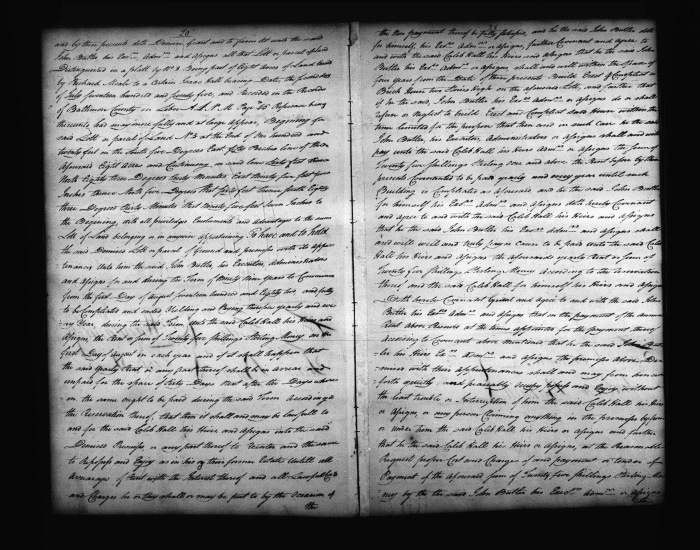 20
and by these presents doth Demise Grant and to farm Let unto the said
John Butler his Exrs Admrs and Assigns all that Lott or parcel of Land
Distinguished in a platt by No 3 Being part of Eight Acres of Land leased
by Richard Moale to a Certain Caleb Hall bearing Date the
of July seventeen hundred and seventy five, and Recorded in the Records
of Baltimore County in Liber A.L. Reference being
thereunto had may more fully and at large Appear, Beginning for
said Lott or parcel of Land No 3 at the End of One hundred and
twenty feet on the South five Degrees East of the line of the
Aforesaid Eight Acres and Continuing on said line
North Eighty three Degrees thirty Minutes East Ninety five feet four
Inches thence North five Degrees West feet thence South Eighty
three Degrees thirty Minutes West Ninety five feet seven Inches to
the Beginning, with all priviledges Emoluments and Advantages to the same
Lott of Land belonging or in anywise appertaining To have and to hold
the said Demised Lott or parcel of Ground and premises with its Appur-
tenances unto him the said John Butler, his Executors, Administrators
and Assigns for and during the Term of Ninety Nine Years to Commence
from the first Day of August seventeen hundred and Eighty two and fully
to be Compleated and ended Yielding and Paying therefore yearly and eve-
ry Year during the said Term unto the said Caleb Hall his Heirs and
Assigns, the Rent or sum of Twenty five Shillings Sterling Money on the
first Day of August in each year and if it shall happen that
the said Yearly Rent or any part thereof shall be in arrear and
unpaid for the space of thirty Days next after the Days whereon
on the same ought to be paid during the said Term According to
the Reservation thereof, that then it shall and may be lawfull to
and for the said Caleb Hall his Heirs and Assigns into the said
Demised Premises or any part thereof to Reenter and the same
to Repossess and Enjoy as in his or their former Estate Untill all
arrearage of Rent with the Interest thereof and all
and Charges he or they shall or may be put to by the Occasion of
the
the Non payment thereof be fully satisfied, and he the said John Butler doth
for himself, his Exrs Admrs or Assigns, further Covenant and agree to
and with the said Caleb Hall his Heirs and Assigns that he the said John
Butler his Exrs Admrs or Assigns shall and will within the space of
four years from the Date of these presents Build Erect & Compleat a
Brick House two Stories high on the aforesaid Lott, and further that
if he the said John Butler his Exrs Admrs or Assigns do or shall
refuse or Neglect to build Erect and Compleat said House within the
time limited for the purpose that then and in such case he the said
John Butler, his Executors Administrators or Assigns shall and will
pay unto the said Caleb Hall his Heirs or Assigns the sum of
Twenty five shillings Sterling over and above the Rent before by these
presents Covenanted to be paid yearly and every year until such
Building is Compleated as aforesaid and he the said John Butler
for himself his Exrs Admrs and Assigns doth hereby Covenant
and agree to and with the said Caleb Hall his Heirs and Assigns
that he the said John Butler his Exrs Admrs and Assigns shall
and will well and truly pay or Cause to be paid unto the said Caleb
Hall his Heirs and Assigns the aforesaid yearly Rent or sum of
Twenty five shillings Sterling Money According to the Reservation
thereof and the said Caleb Hall for himself his Heirs and Assigns
doth hereby Covenant Grant and agree to and with the said John
Butler his Exrs Admrs and Assigns that on the payment of the annual
Rent above Reserved at the times appointed for the payment thereof
according to Covenant above Mentioned that he the said John But-
ler his Heirs Exrs Admrs and Assigns the premises above De-
mised with their Appurtenances shall and may from hence-
forth quietly and peaceably Occupy Possess and Enjoy without
the least trouble or Interruption of him the said Caleb Hall his Heirs
or Assigns or any person Claiming anything in the premises by from
or under him the said Caleb Hall his Heirs or Assigns and further
that he the said Caleb Hall, his Heirs or Assigns, at the Reasonable
Request proper Cost and Charge of and payment or tender of
Payment of the aforesaid Sum of Twenty five Shillings Sterling Mo-
ney by the the said John Butler his Exrs Admrs or Assigns